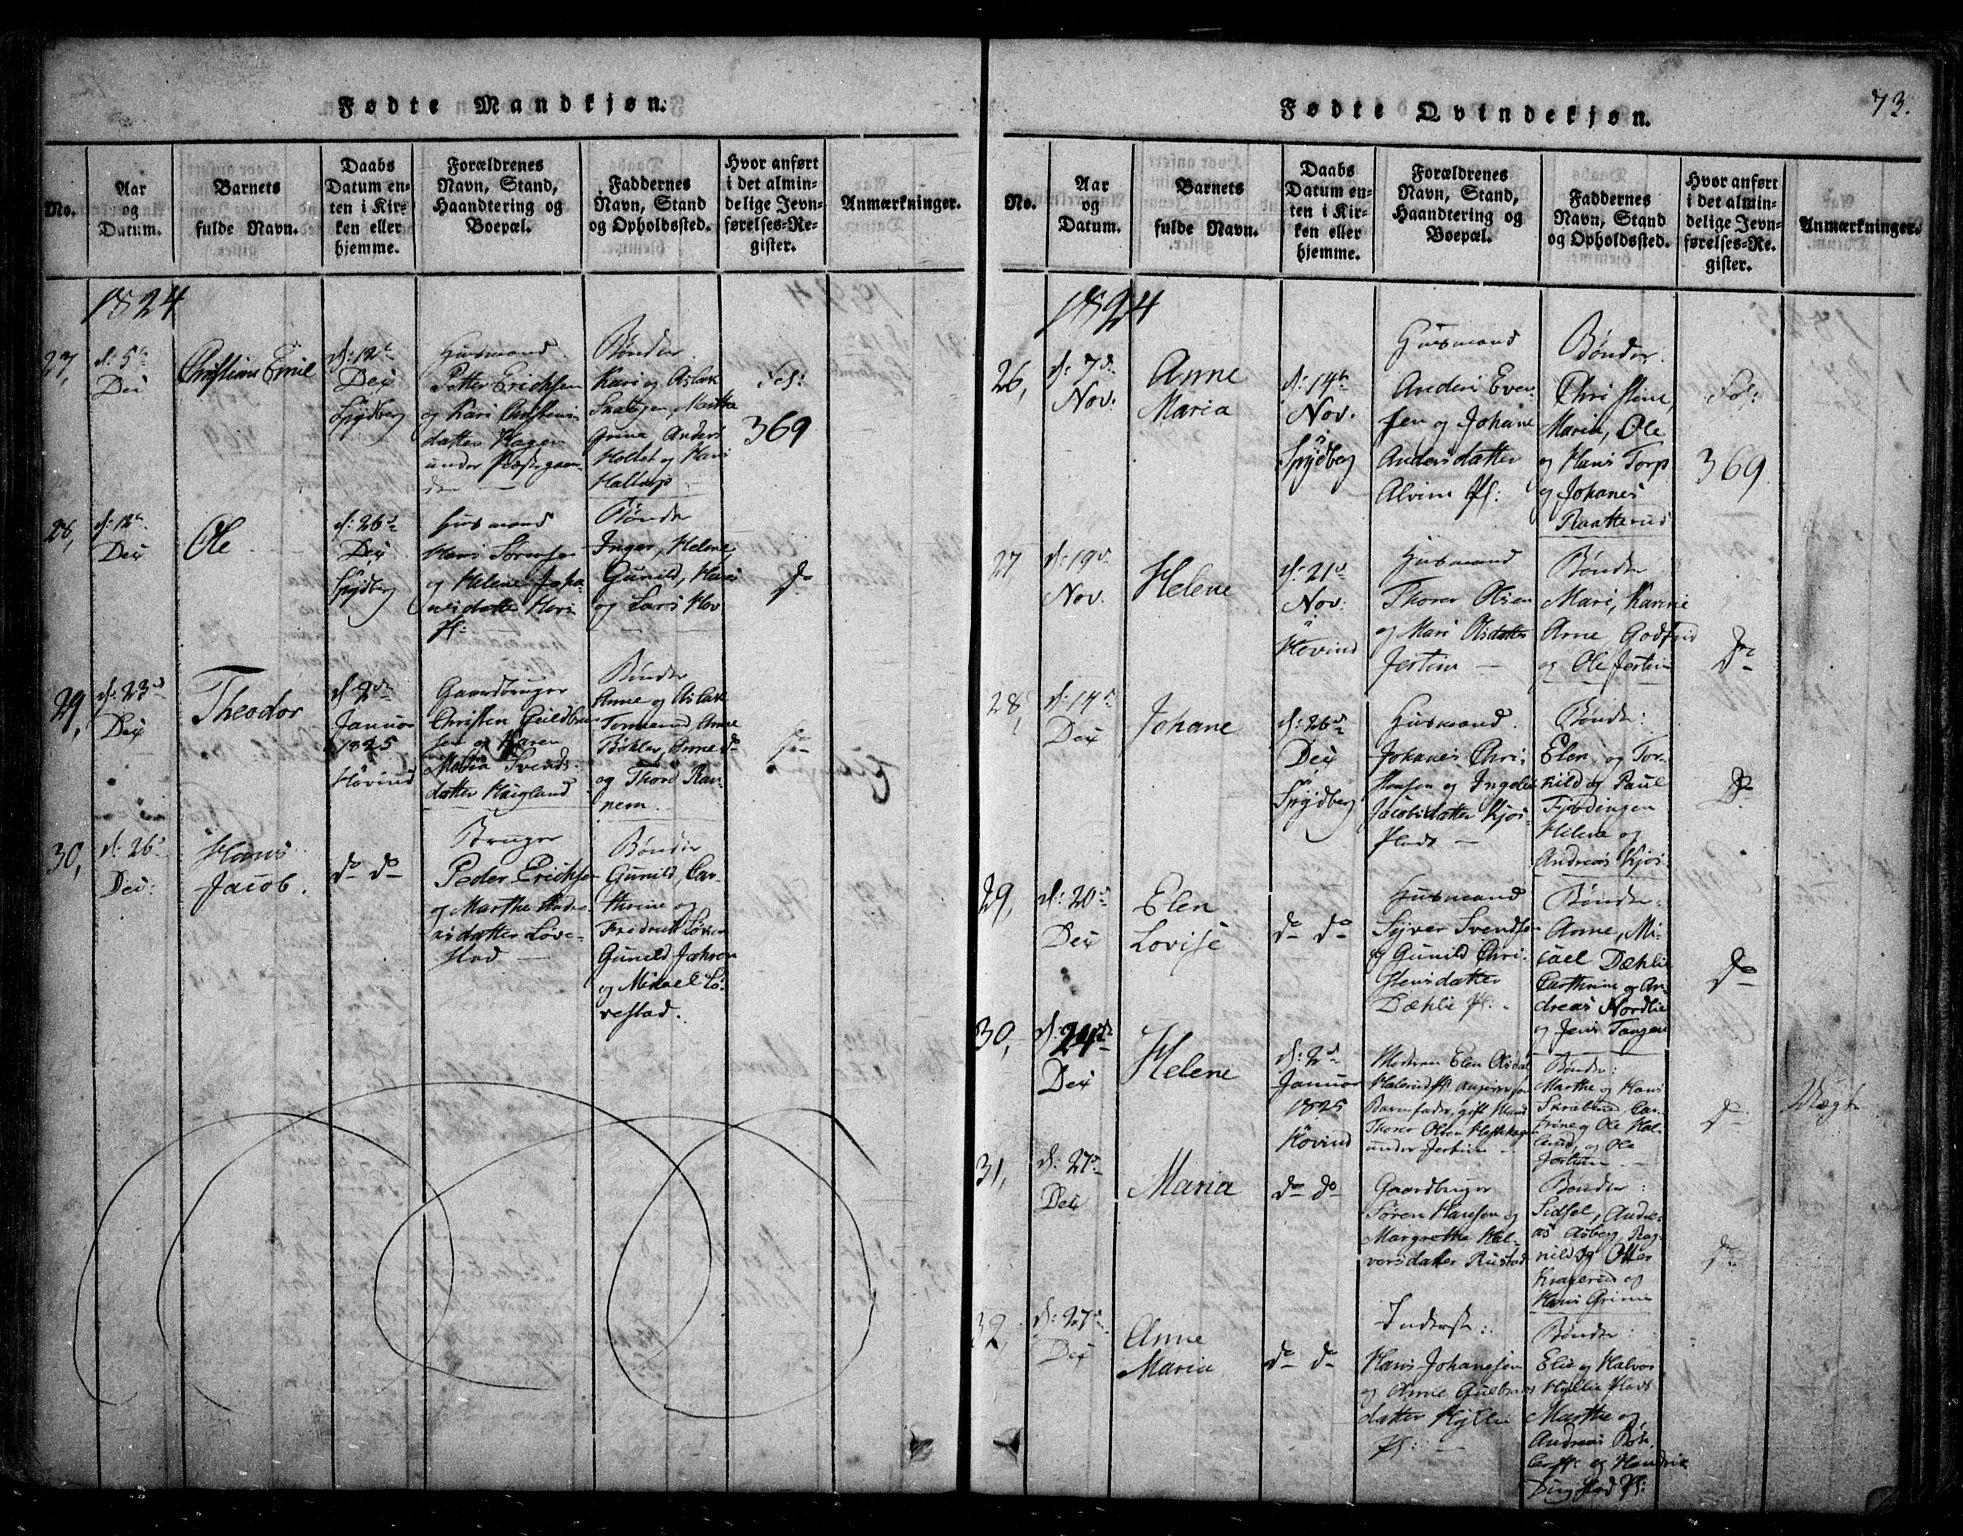 Fødte Mandkjøn.
No.
Aar
og
Datum.
Barnets
fulde Navn.
Daabs
Datum en-
ten i Kir-
ken eller
hjemme.
Forældrenes
Navn, Stand,
Haandtering og
Boepæl.
Faddernes
Navn, Stand
og Opholdssted.
Hvor anført
i det almin-
delige Jevn-
førelses-Re-
gister.
Anmærkninger.
1824
27,
d: 5te
Dec
Christian Emil
d: 12te
Dec
Spydberg
Huusmand
Petter Erichsen
og Kari Christens
datter Hagen
under Præstegaar-
den
Bønder
Kari og Aslak
Martha
Anders
Holtet og Hans
Fol:
369
28,
d: 12te
Dec
Ole
d: 26de
Dec
Spydberg
Huusmand
Hans Sørensen
og Helene Joha-
nesdatter
Pl:
Bønder
Inger, Helene,
Gunild, Hans
og Lars Hov
do
29,
d: 23de
Dec
Theodor
d: 2den
Januar
1825
Høvind
Gaardbruger
Christen Guldbran-
sen og Karen
Maria Svends-
datter Haugland
Bønder
Anne og Aslak
Anne
Bøhler, Anne
og Thore Ra-
nem.
do
30,
d: 26de
Dec:
Hans
Jacob.
do do
Bruger
Peder Erichsen
og Marthe Andre-
asdatter Løve-
stad
Bønder
Gunild, Ca-
thrine og
Fredrich Løve
Gunild Jahren
og Michael Lø-
vestad.
Fødte Qvindekjøn.
73.
No.
Aar
og
Datum.
Barnets
fulde Navn.
Daabs
Datum en-
ten i Kir-
ken eller
hjemme.
Forældrenes
Navn, Stand,
Haandtering og
Boepæl.
Faddernes
Navn, Stand
og Opholdssted.
Hvor anført
i det almin-
delige Jevn-
førelses-Re-
gister.
Anmærkninger.
1824
26,
d: 7de
Nov:
Anne
Maria
d: 14te
Nov.
i
Spydberg
Huusmand
Anders Even-
sen og Johane
Andersdatter
Alvim Pl:
Bønder.
Christine,
Maria, Ole
og Hans Torp
og Johanes
Raatterud
Fol:
369
27
d: 19de
Nov.
Helene
d: 21de
Nov:
i
Hovind
Huusmand
Thorer Olsen
og Mari Olsdatter
Jertim
Bønder
Mari, Karine
Arne Godtfrid
og Ole Jertim
do
28,
d: 14de
Dec
Johane
d: 26de
Dec
i
Spydberg
Huusmand.
Johanes Chri-
stensen og Ingeborg
Jacobsdatter Kjos
Plads
Bønder:
Elen, og Tor-
nild og Paul
Fjødingen
Helene og
Andreas Kjos
do
29,
d: 20de
Dec
Elen
Lovise
do do
Huusmand
Syver Svendsen
og Gunild Chri-
stensdatter
Dæhlie Pl:
Bønder:
Anne, Mi-
cael Dæhlie
Carthrine og An-
dreas Nordlie
og Jens Tangen
do
30,
d: 24de
Dec
Helene
d: 2den
Januar
1825
Hovind
Moderen Elen Olsdat
Barnefader, gift Mand
Thorer Olsen
under Jertim
Bønder:
Marthe og Hans
Ole
og Ole
Jertim
do
Uægte
31,
d: 27de
Dec
Maria
do do
Gaardbruger
Søren Hansen og
Margrethe Hal-
vorsdatter Rustad
Bønder:
Sidsel, Andre-
as Asberg Rag-
nild og Otter
Kragerud og
Hans Grimu
do
32,
d: 27de
Dec
Anne
Maria
do do
Inderste:
Hans Johanesen
og Anne Gulbrands
datter Hyllie
Pl:
Bønder:
Elie og Halvor
Hyllie
Marthe og
Andreas
og Hendrik
Pl: